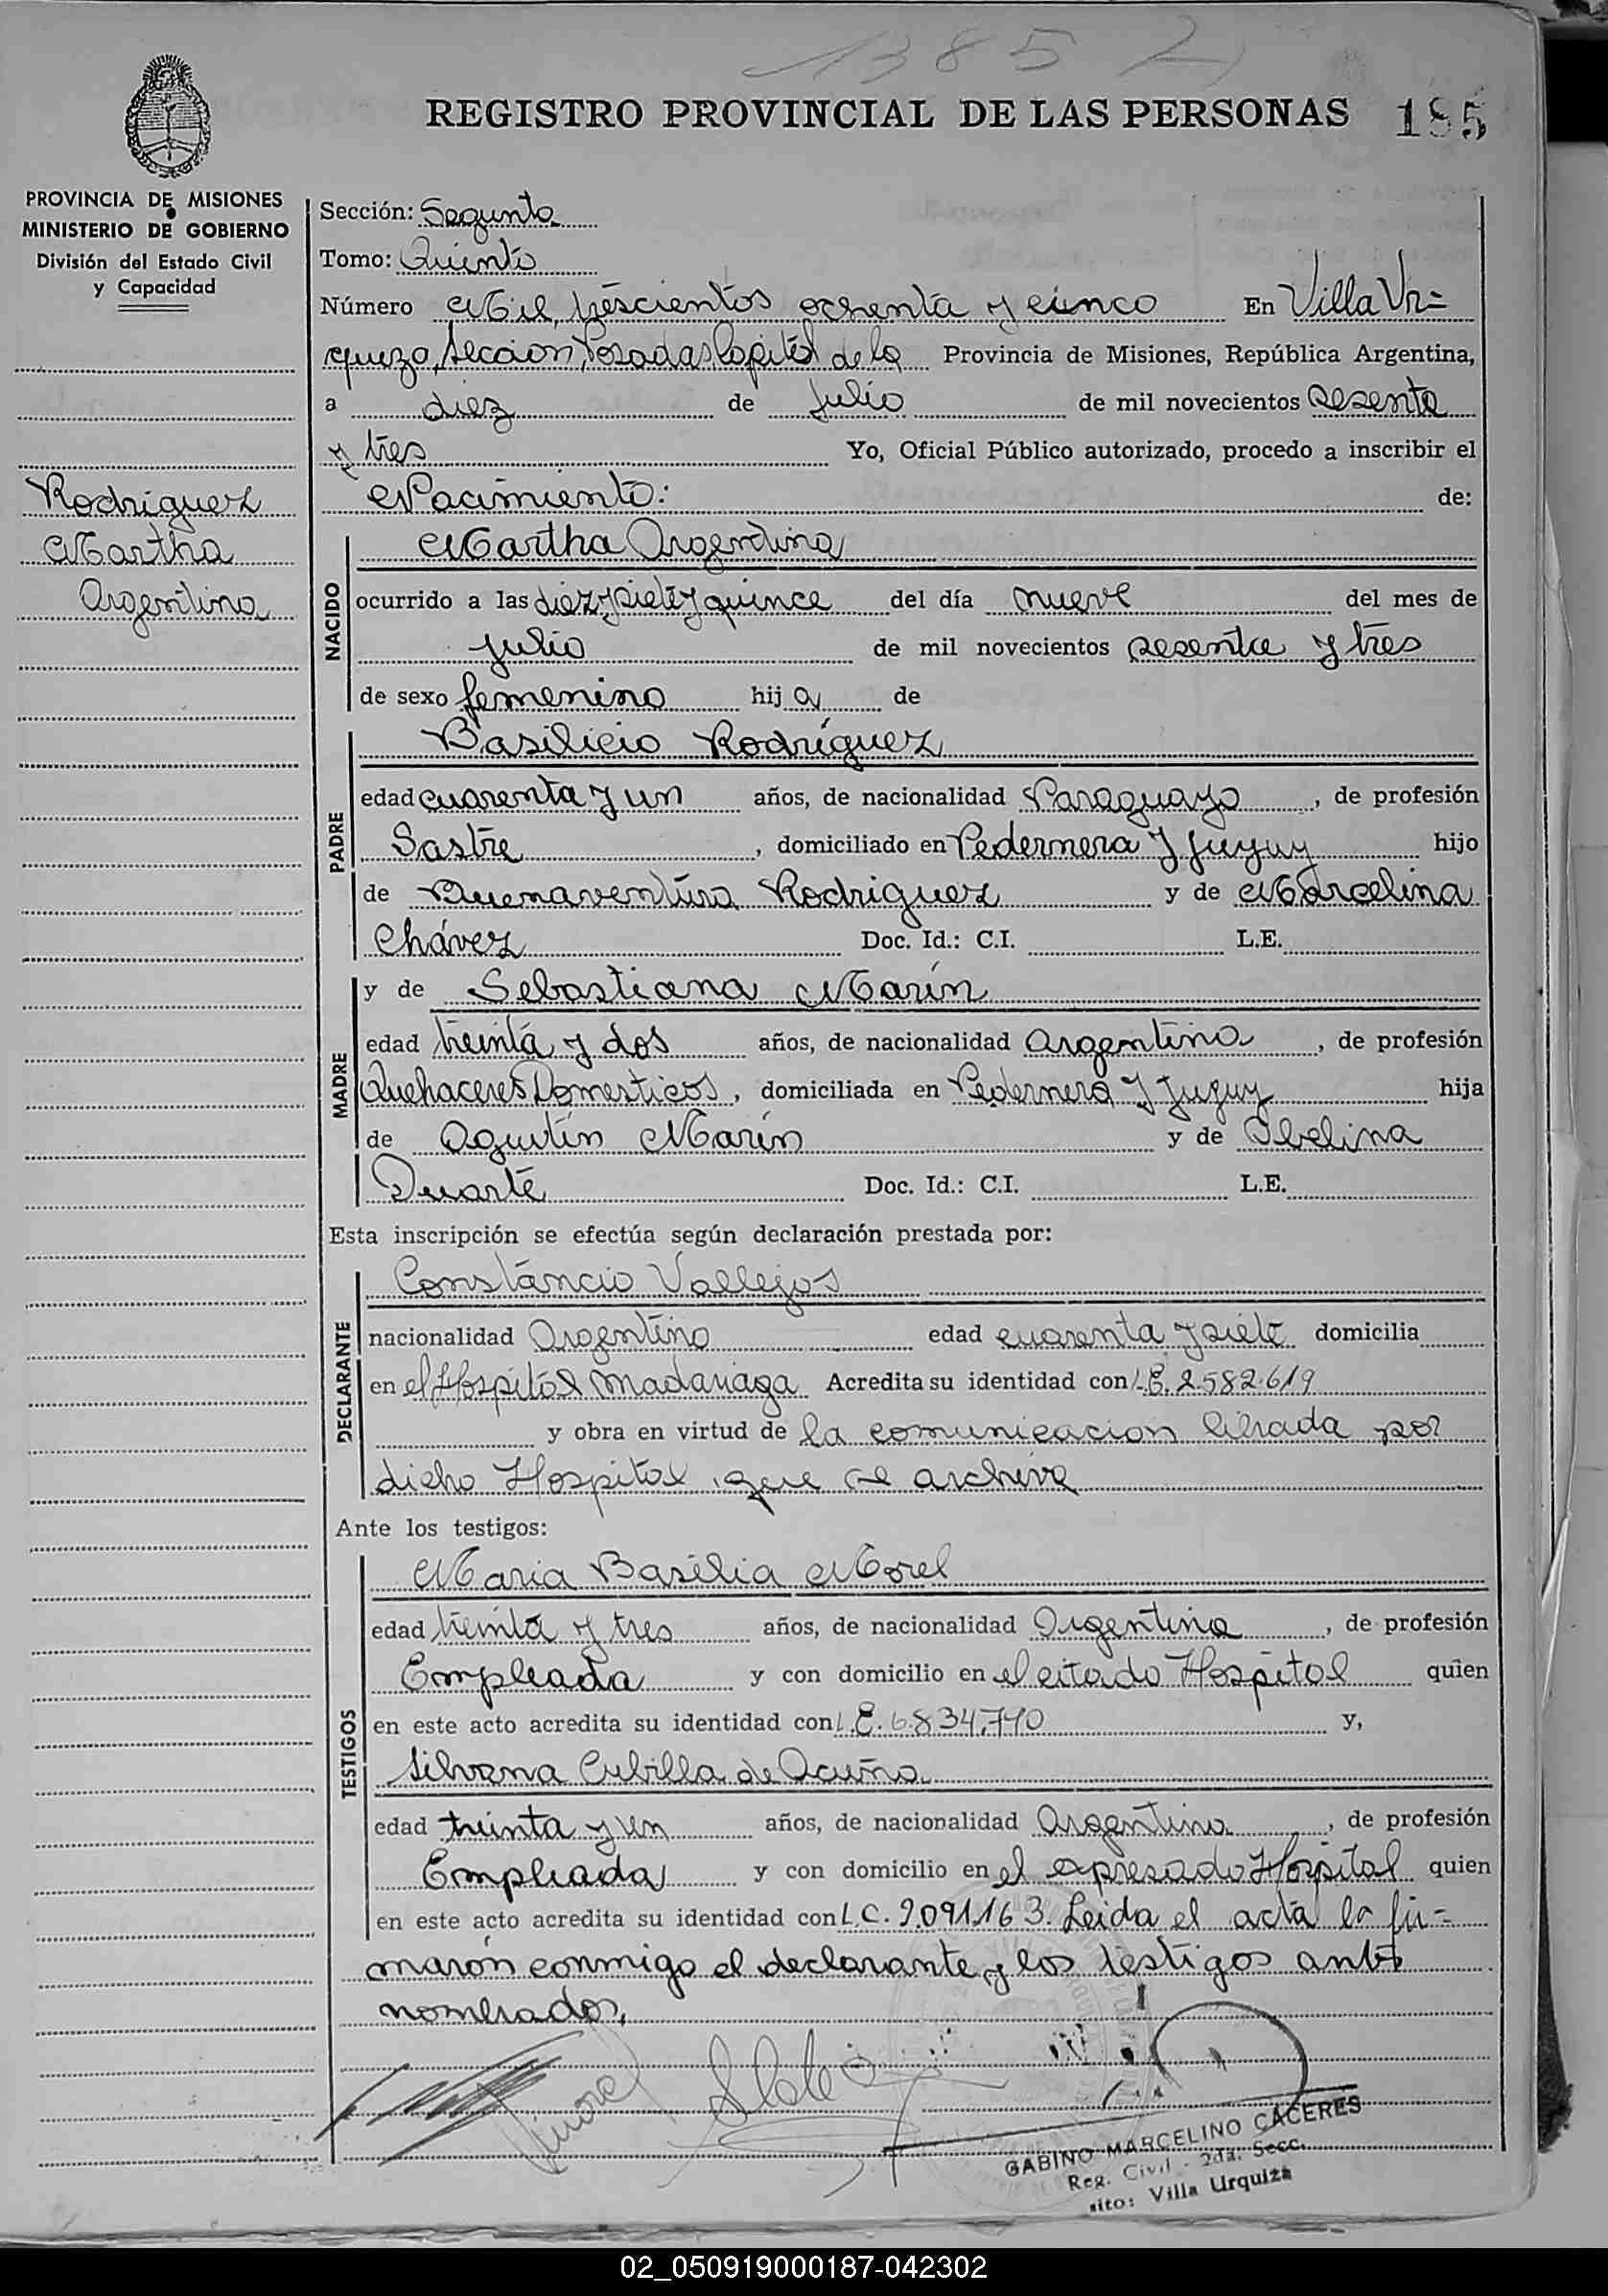 1385
REGISTRO PROVINCIAL DE LAS PERSONAS 185
PROVINCIA DE MISIONES
MINISTERIO DE GOBIERNO
División del Estado Civil
y Capacidad
Rodriguez
Martha
Argentina
Sección: Segunda
Tomo: Quinto
Número Mil, trescientos ochenta y cinco En Villa Ur=
quiza, Sección Posadas, Capital de la Provincia de Misiones, República Argentina,
a diez de Julio de mil novecientos sesenta
y tres Yo, Oficial Público autorizado, procedo a inscribir el
Nacimiento: de:
NACIDO
Martha Argentina
ocurrido a las diez y siete y quince del día nueve del mes de
julio de mil novecientos sesenta y tres
de sexo femenino hij a de
PADRE
Basilicio Rodríguez
edad cuarenta y un años, de nacionalidad Paraguayo, de profesión
Sastre, domiciliado en Pedernera y Jujuy hijo
de Buenaventura Rodriguez y de Marcelina
Chávez Doc. Id.: C.I. L.E.
MADRE
y de Sebastiana Marín
edad treinta y dos años, de nacionalidad Argentina, de profesión
Quehaceres Domesticos, domiciliada en Pedernera y Jujuy hija
de Agustín Marín y de Obelina
Duarte Doc. Id.: C.I. L.E.
Esta inscripción se efectúa según declaración prestada por:
DECLARANTE
Constancio Vallejos
nacionalidad Argentino edad cuarenta y siete domicilia
en el Hospital Madariaga Acredita su identidad con L.E. 2.582.619
y obra en virtud de la comunicacion librada por
dicho Hospital, que se archiva
Ante los testigos:
TESTIGOS
Maria Basilia Morel
edad treinta y tres años, de nacionalidad Argentina, de profesión
Empleada y con domicilio en el citado Hospital quien
en este acto acredita su identidad con L.E. 6.834.770 y,
Silvana Cubilla de Acuña
edad treinta y un años, de nacionalidad Argentina, de profesión
Empleada y con domicilio en el expresado Hospital quien
en este acto acredita su identidad con L.C. 9.091.163. Leida el acta la fir=
maron conmigo el declarante y los testigos ante
nombrados,
GABINO MARCELINO CÁCERES
Reg. Civil - 2da. Secc.
sito: Villa Urquiza
02_050919000187-042302